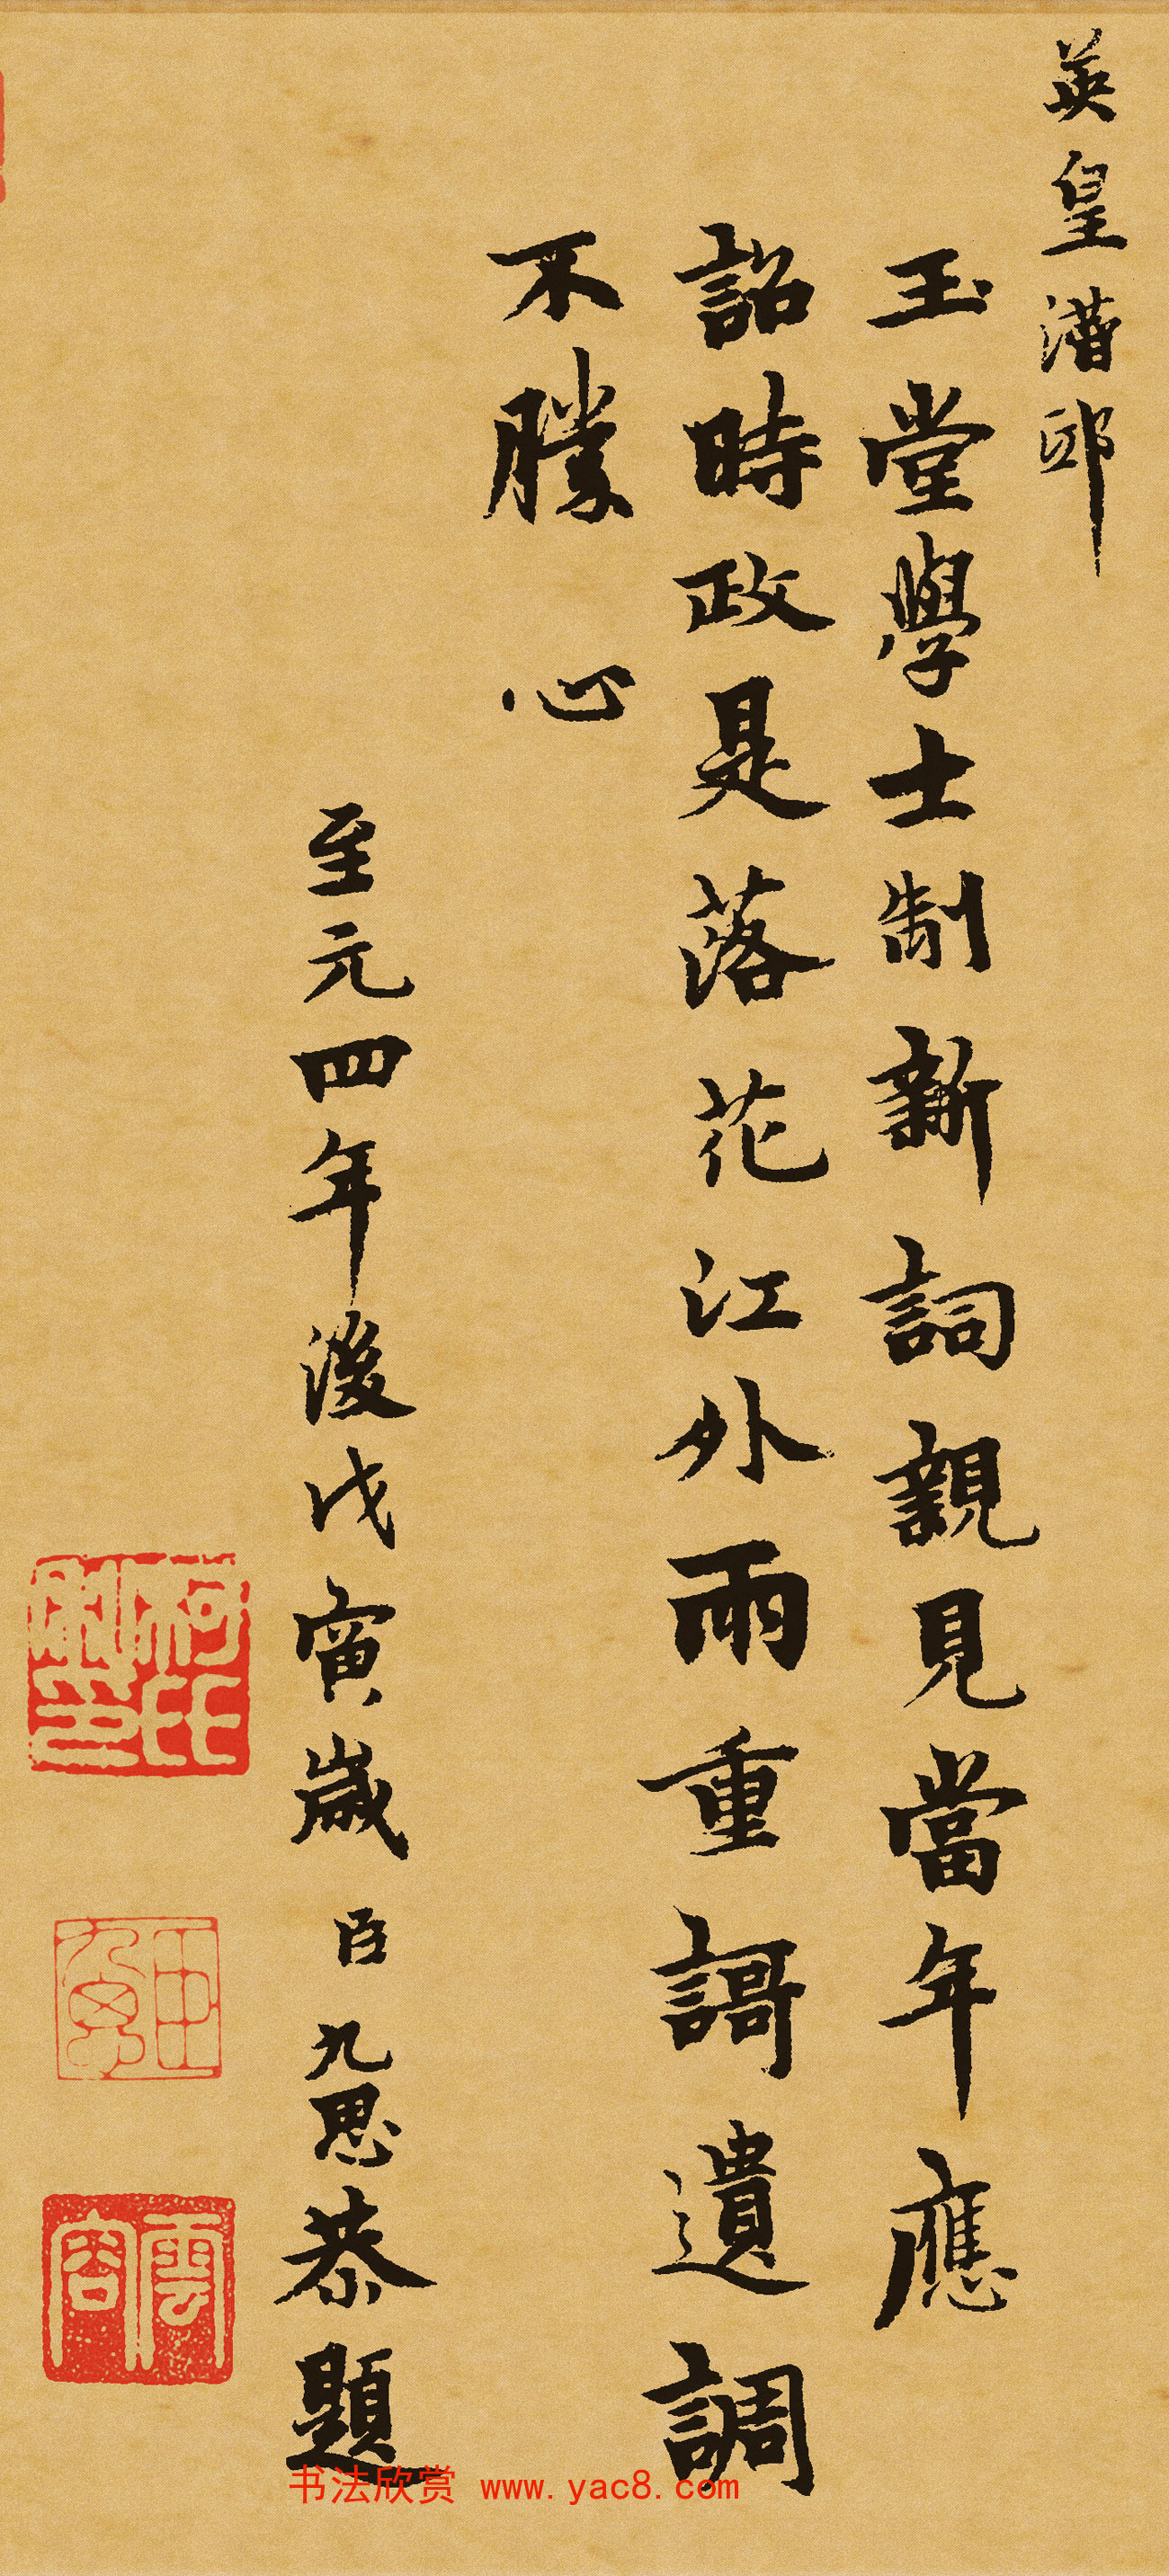 英皇潛邸
玉堂學士制新詞親見當年應
詔時政是落花江外雨重謌遺調
不勝心
至元四年後戊寅歲臣九思恭題
柯氏敬仲
雲容
书法欣赏 www.yac8.com